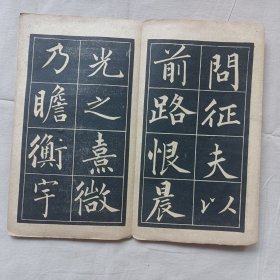 問征夫以
前路恨晨
光之熹微
乃瞻衡宇